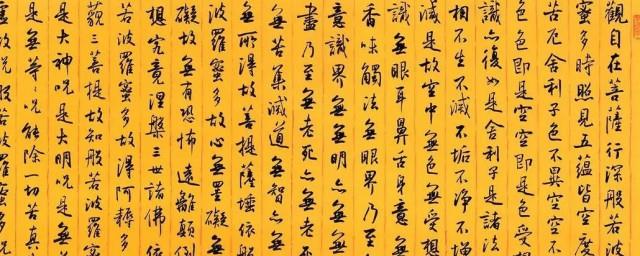 觀自在菩薩行深般若波
蜜多時照見五蘊皆空度
苦厄舍利子色不異空空不
色色即是空空即是色受想
識亦復如是舍利子是諸法
相不生不滅不垢不淨不增
減是故空中無色無受想
識無眼耳鼻舌身意無
香味觸法無眼界乃至
意識界無無明亦無無
盡乃至無老死亦無老死
無苦集滅道無智亦無
無所得故菩提薩埵依般
波羅蜜多故心無罣礙無
礙故無有恐怖遠離顛倒
想究竟涅槃三世諸佛依
若波羅蜜多故得阿耨多
藐三菩提故知般若波羅蜜
是大神咒是大明咒是無
是無等等咒能除一切苦真
虛故說般若波羅蜜多咒